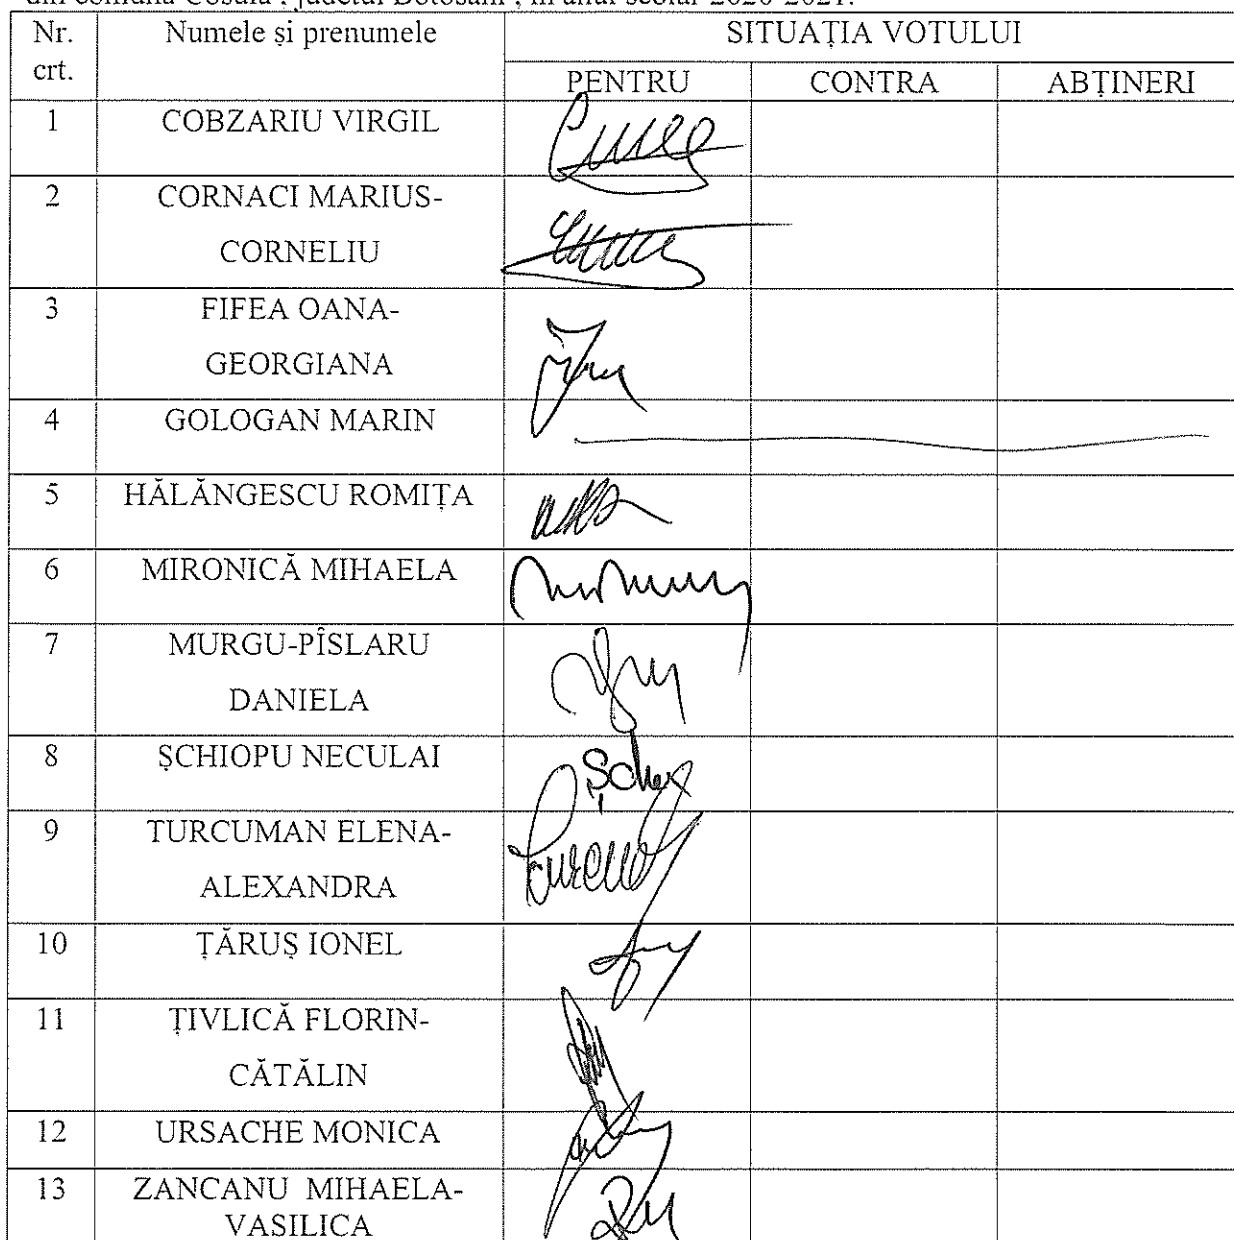 din comuna Coșula , județul Botoșani , în anul școlar 2020-2021.
Nr. crt. Numele și prenumele SITUAȚIA VOTULUI
PENTRU CONTRA ABȚINERI
1 COBZARIU VIRGIL
2 CORNACI MARIUS-
CORNELIU
3 FIFEA OANA-
GEORGIANA
4 GOLOGAN MARIN
5 HĂLĂNGESCU ROMIȚA
6 MIRONICĂ MIHAELA
7 MURGU-PÎSLARU
DANIELA
8 ȘCHIOPU NECULAI
9 TURCUMAN ELENA-
ALEXANDRA
10 ȚĂRUȘ IONEL
11 ȚIVLICĂ FLORIN-
CĂTĂLIN
12 URSACHE MONICA
13 ZANCANU MIHAELA-
VASILICA